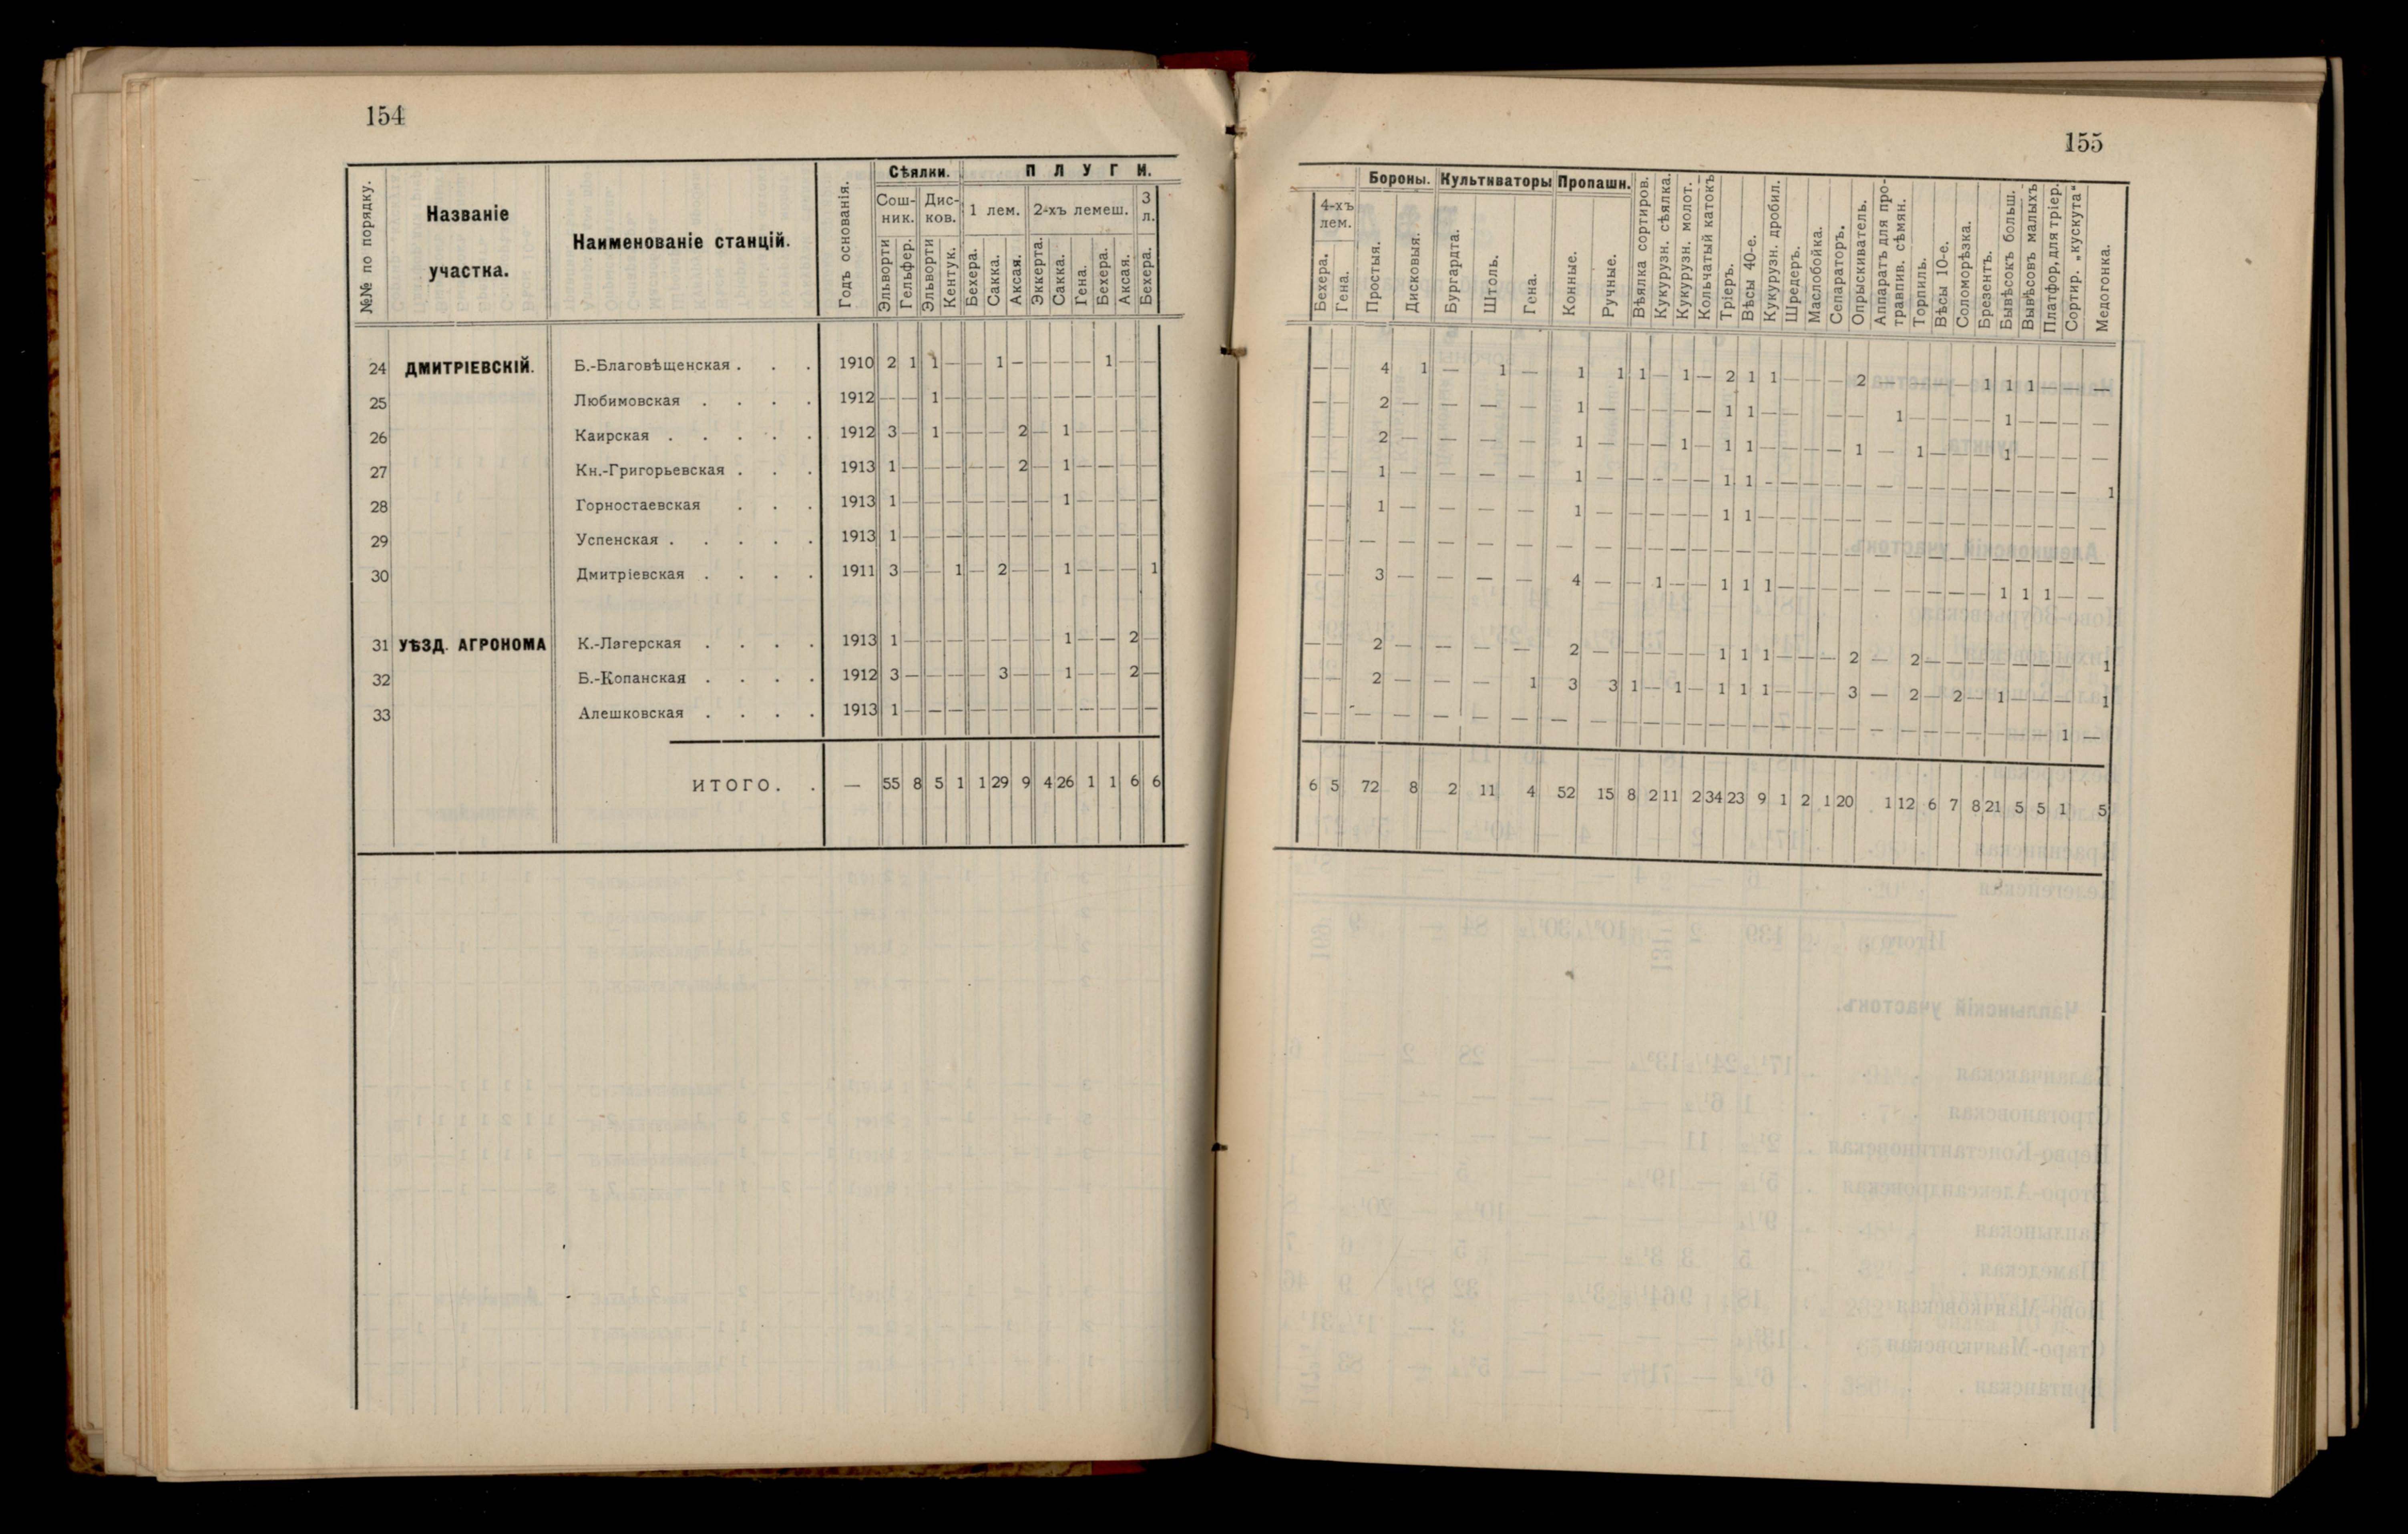 154
№№ по порядку.
Названіе участка.
Наименованіе станцій.
Годъ основанія.
Сѣялки.
ПЛУГИ.
Сош-ник.
Дис-ков.
1 лем.
2-хъ лемеш.
3 л.
Эльворти
Гельфер.
Эльворти
Кентук.
Бехера.
Сакка.
Аксая.
Эккерта.
Сакка.
Гена.
Бехера.
Аксая.
Бехера.
24 ДМИТРІЕВСКІЙ. Б.-Благовѣщенская . . . 1910 2 1 1 — — 1 — — — — 1 — —
25 Любимовская . . . . 1912 — — 1 — — — — — — — — — —
26 Каирская . . . . . 1912 3 — 1 — — — 2 — 1 — — — —
27 Кн.-Григорьевская . . . 1913 1 — — — — — 2 — 1 — — — —
28 Горностаевская . . . 1913 1 — — — — — — — 1 — — — —
29 Успенская . . . . . 1913 1 — — — — — — — — — — — —
30 Дмитріевская . . . . 1911 3 — — 1 — 2 — — 1 — — — 1
31 УѢЗД. АГРОНОМА К.-Лагерская . . . . 1913 1 — — — — — — — 1 — — 2 —
32 Б.-Копанская . . . . 1912 3 — — — — 3 — — 1 — — 2 —
33 Алешковская . . . . 1913 1 — — — — — — — — — — — —
ИТОГО. . — 55 8 5 1 1 29 9 4 26 1 1 6 6
155
4-хъ лем.
Бороны.
Культиваторы
Пропашн.
Бехера.
Гена.
Простыя.
Дисковыя.
Бургардта.
Штоль.
Гена.
Конные.
Ручные.
Вѣялка сортиров.
Кукурузн. сѣялка.
Кукурузн. молот.
Кольчатый катокъ
Тріеръ.
Вѣсы 40-е.
Кукурузн. дробил.
Шредеръ.
Маслобойка.
Сепараторъ.
Опрыскиватель.
Аппаратъ для про-
травпив. сѣмян.
Торпиль.
Вѣсы 10-е.
Соломорѣзка.
Брезентъ.
Вывѣсокъ больш.
Вывѣсовъ малыхъ
Платфор, для тріер.
Сортир. „кускута"
Медогонка.
— — 4 1 — 1 — 1 1 1 — 1 — 2 1 1 — — — 2 — — — — 1 1 1 — — —
— — 2 — — — — 1 — — — — — 1 1 — — — — 1 — — — — 1 — — — —
— — 2 — — — — 1 — — — 1 — 1 1 — — — — 1 — 1 — — — 1 — — — —
— — 1 — — — — 1 — — — — — 1 1 — — — — — — — — — — — — — — 1
— — 1 — — — — 1 — — — — — 1 1 — — — — — — — — — — — — — — —
— — — — — — — — — — — — — — — — — — — — — — — — — — — — — —
— — 3 — — — — 4 — — 1 — — 1 1 1 — — — — — — — — — 1 1 1 — —
— — 2 — — — — 2 — — — — — 1 1 1 — — — 2 — 2 — — — — — — — 1
— — 2 — — — 1 3 3 1 — 1 — 1 1 1 — — — 3 — 2 — 2 — 1 — — — 1
— — — — — — — — — — — — — — — — — — — — — — — — — — — — 1 —
6 5 72 8 2 11 4 52 15 8 2 11 2 34 23 9 1 2 1 20 1 12 6 7 8 21 5 5 1 5